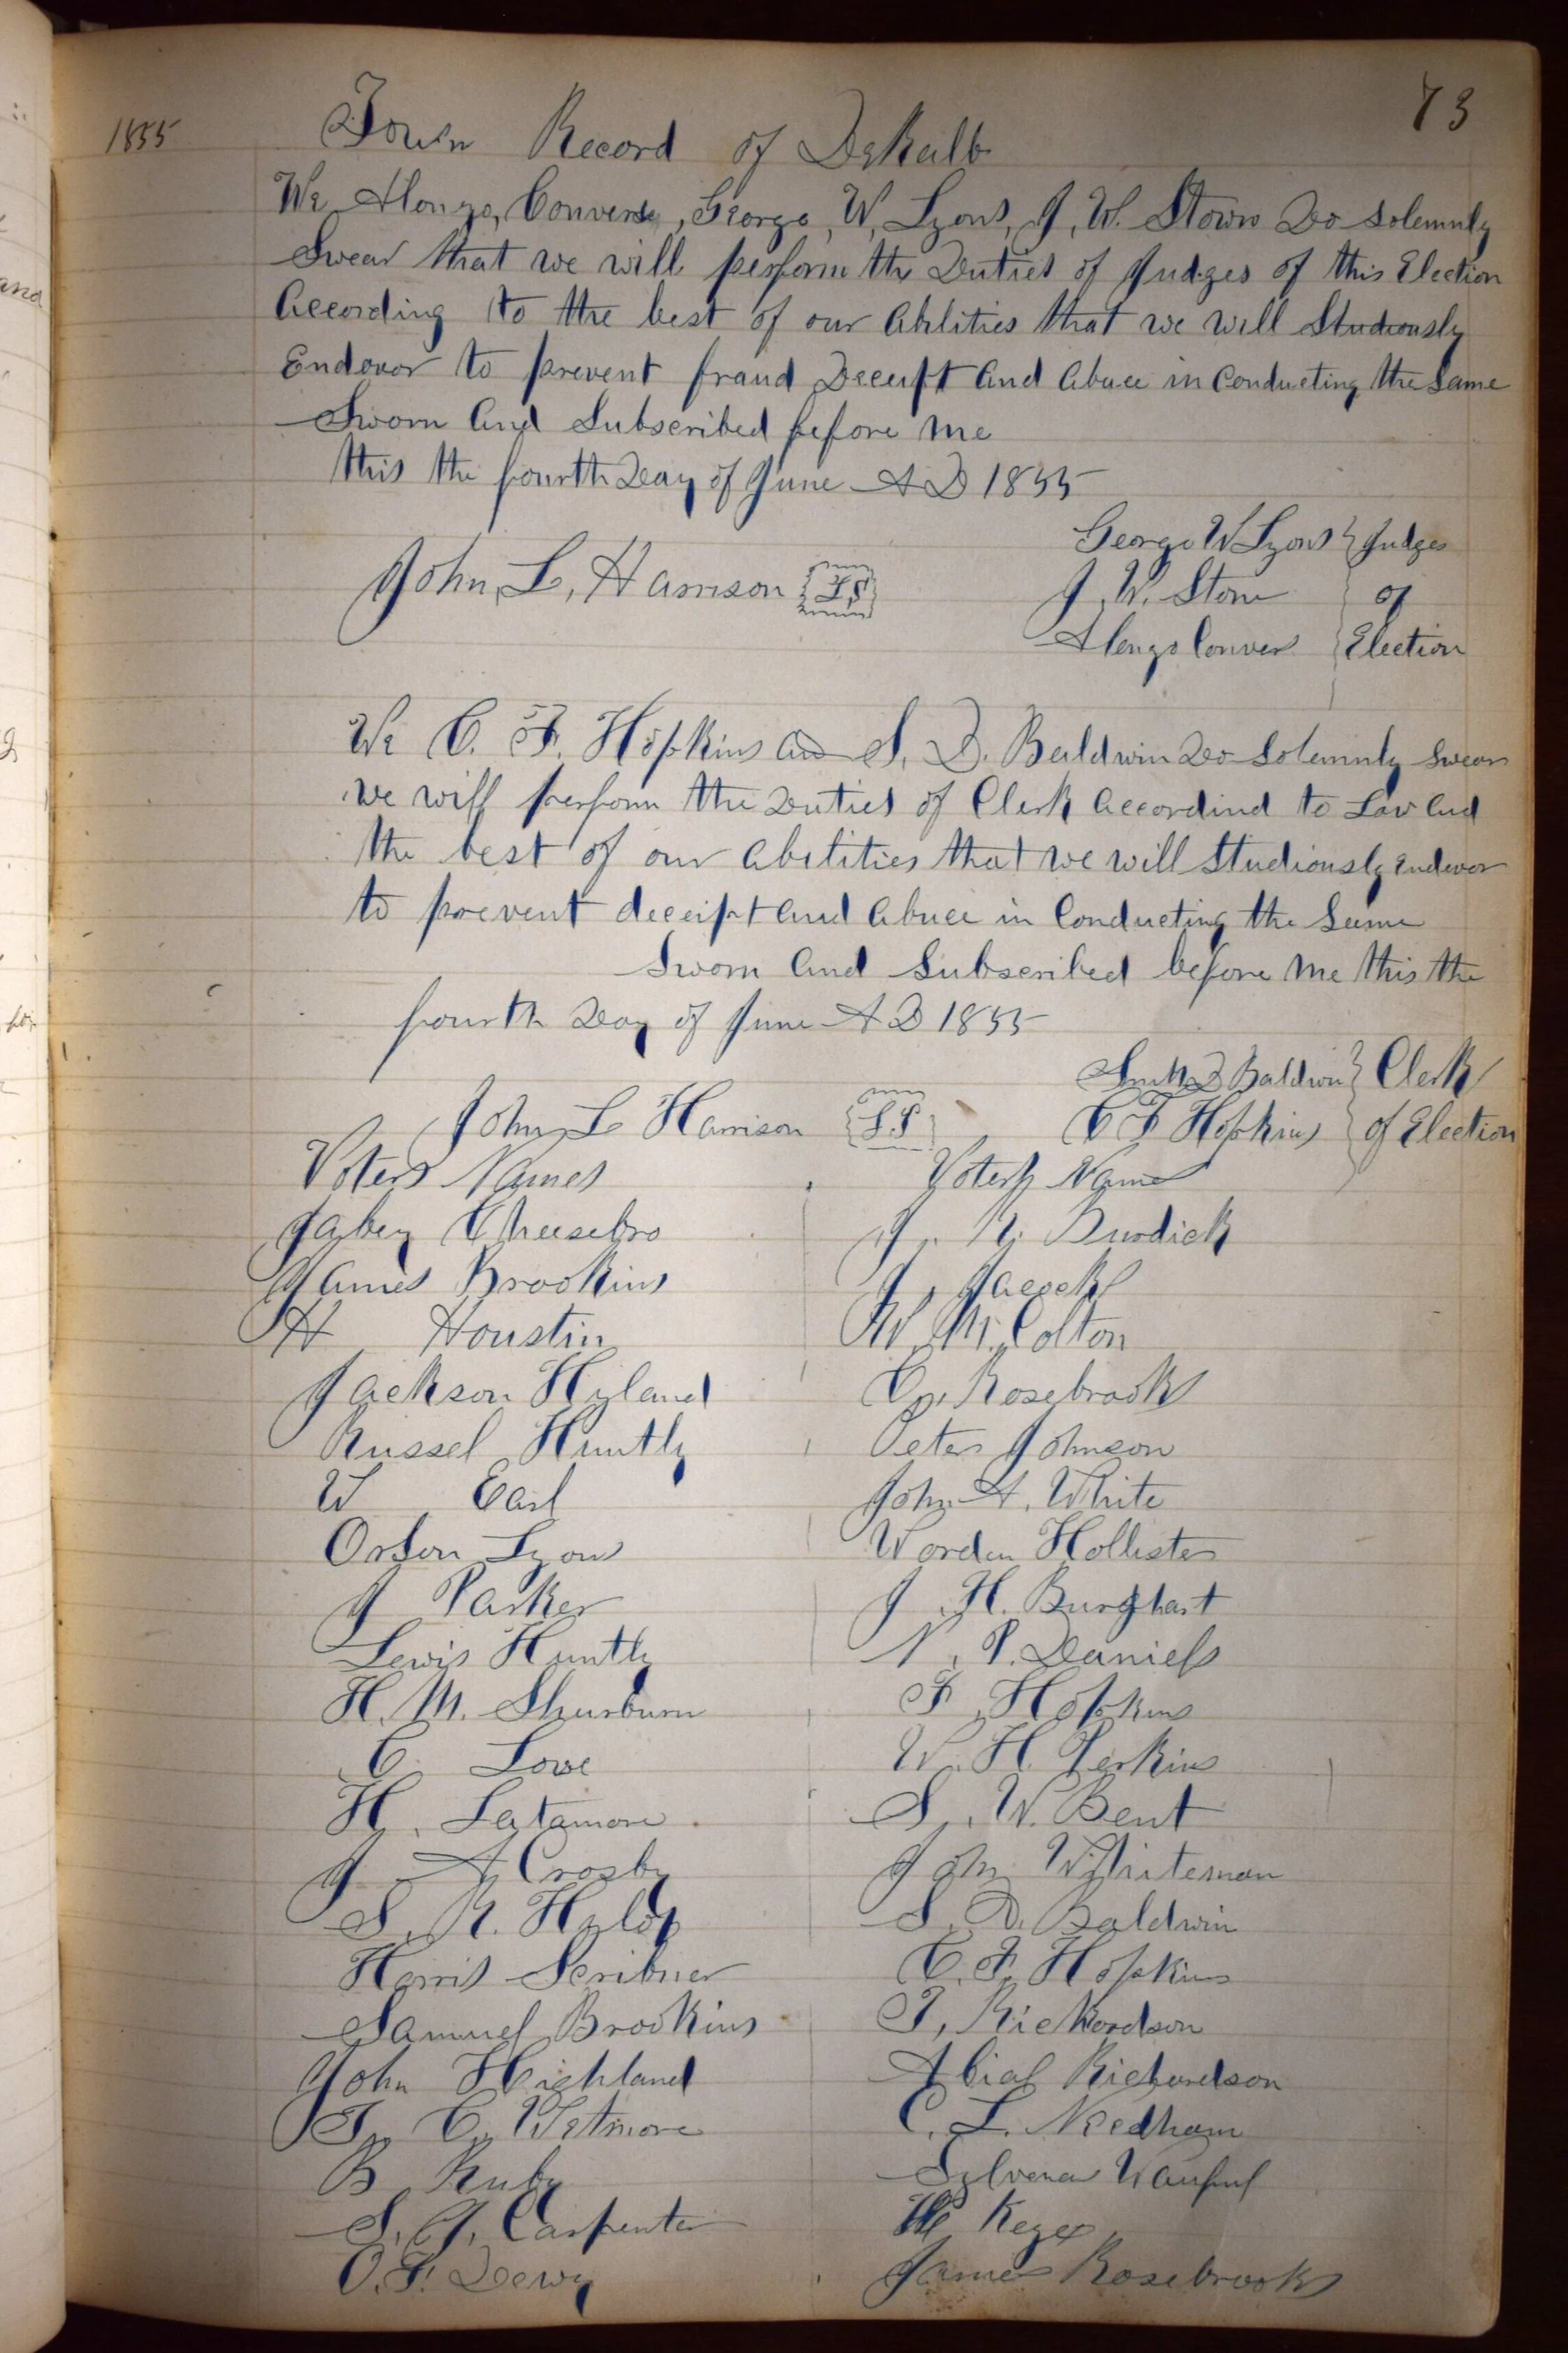 73
1855
Town Record of DeKalb
We Alonzo, Converse, George, W, Lyons, J, W. Stown Do solemnly
Swear that we will perform the Duties of Judges of this Election
According to the best of our Abilities that we will Studiously
Endovor to prevent fraud Deceipt And Abuce in Conducting the Same
Sworn And Subscribed before me
this the fourth Day of June A D 1855
George W Lyons } Judges
John, L, Harrison {L S}
J. W. Stone } of
Alonzo Convers } Election
We C. F. Hopkins and S. D. Baldwin Do Solemnly Swear
we will perform the Duties of Clerk Accordind to Law And
the best of our Abilities that we will Studiously Endevor
to prevent deceipt And Abuce in Conducting the Same
Sworn And Subscribed before me this the
fourth Day of June A D 1855
Smith D Baldwin } Clerk
John L Harrison {L S} C F Hopkins } of Election
Voters Names Voters Name
Jabez Cheesebro J. R. Burdick
James Brookins J, Jacock
H Houstin W. M. Colton
Jackson Hyland C, Rosebrook
Russel Huntly Peter Johnson
W Earl John A. White
Orson Lyons Worden Hollister
J Parker J. H. Burghart
Lewis Huntly N, P. Daniels
H. M. Shurburn F, Hopkins
C Love W. H. Perkins
H, Latamore S, W. Bent
J A Crosby John Whiteman
S. R. S. D. Baldwin
Harris Scribner C. F. Hopkins
Samuel Brookins T, Rickordson
John Highland Abial Richardson
T. C. Wetmore C. L. Needham
B Ruby Sylvena
S. J. Carpenter Keyes
O. F. Dewy James Rosebrook